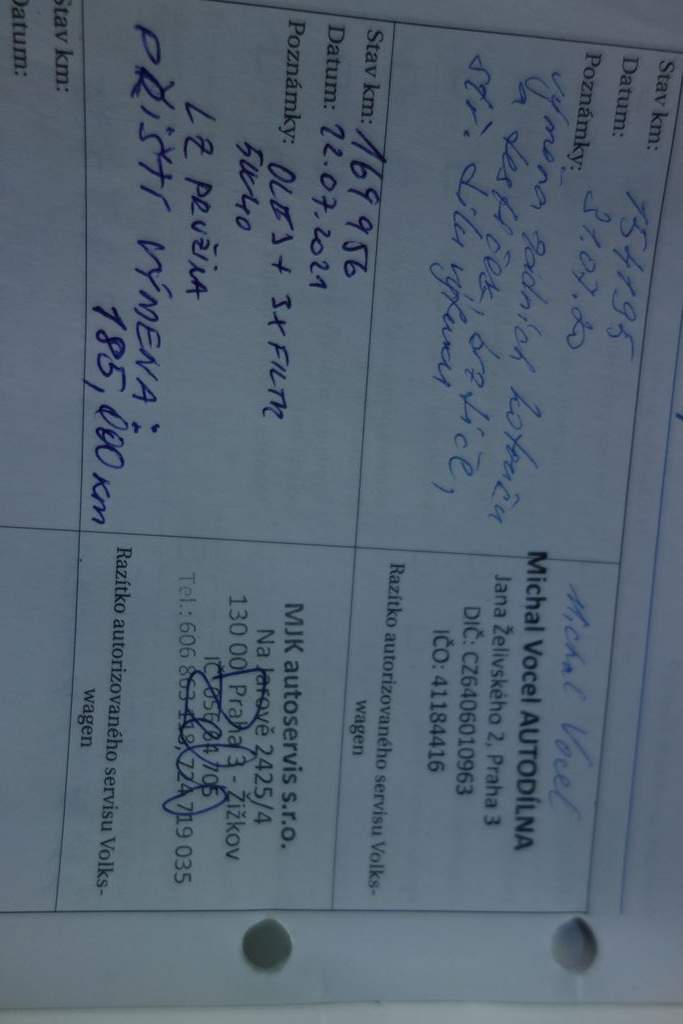 Stav km: 154195
Datum: 31.07.20
Poznámky:
výměna zadních kotoučů
a destiček, brzdiče,
Michal Vocel
Michal Vocel AUTODÍLNA
Jana Želivského 2, Praha 3
DIČ: CZ6406010963
IČO: 41184416
Razítko autorizovaného servisu Volks-
wagen
Stav km: 169 956
Datum: 22.07.2021
Poznámky: OLEJ + 3X FILTR
5W40
LZ PRUŽINA
PŘÍŠTÍ VÝMĚNA
185,000 km
MJK autoservis s.r.o.
Na Jarově 2425/4
130 00 Praha 3 - Žižkov
Tel.: 606 863 118, 724 719 035
Razítko autorizovaného servisu Volks-
wagen
Stav km:
Datum: